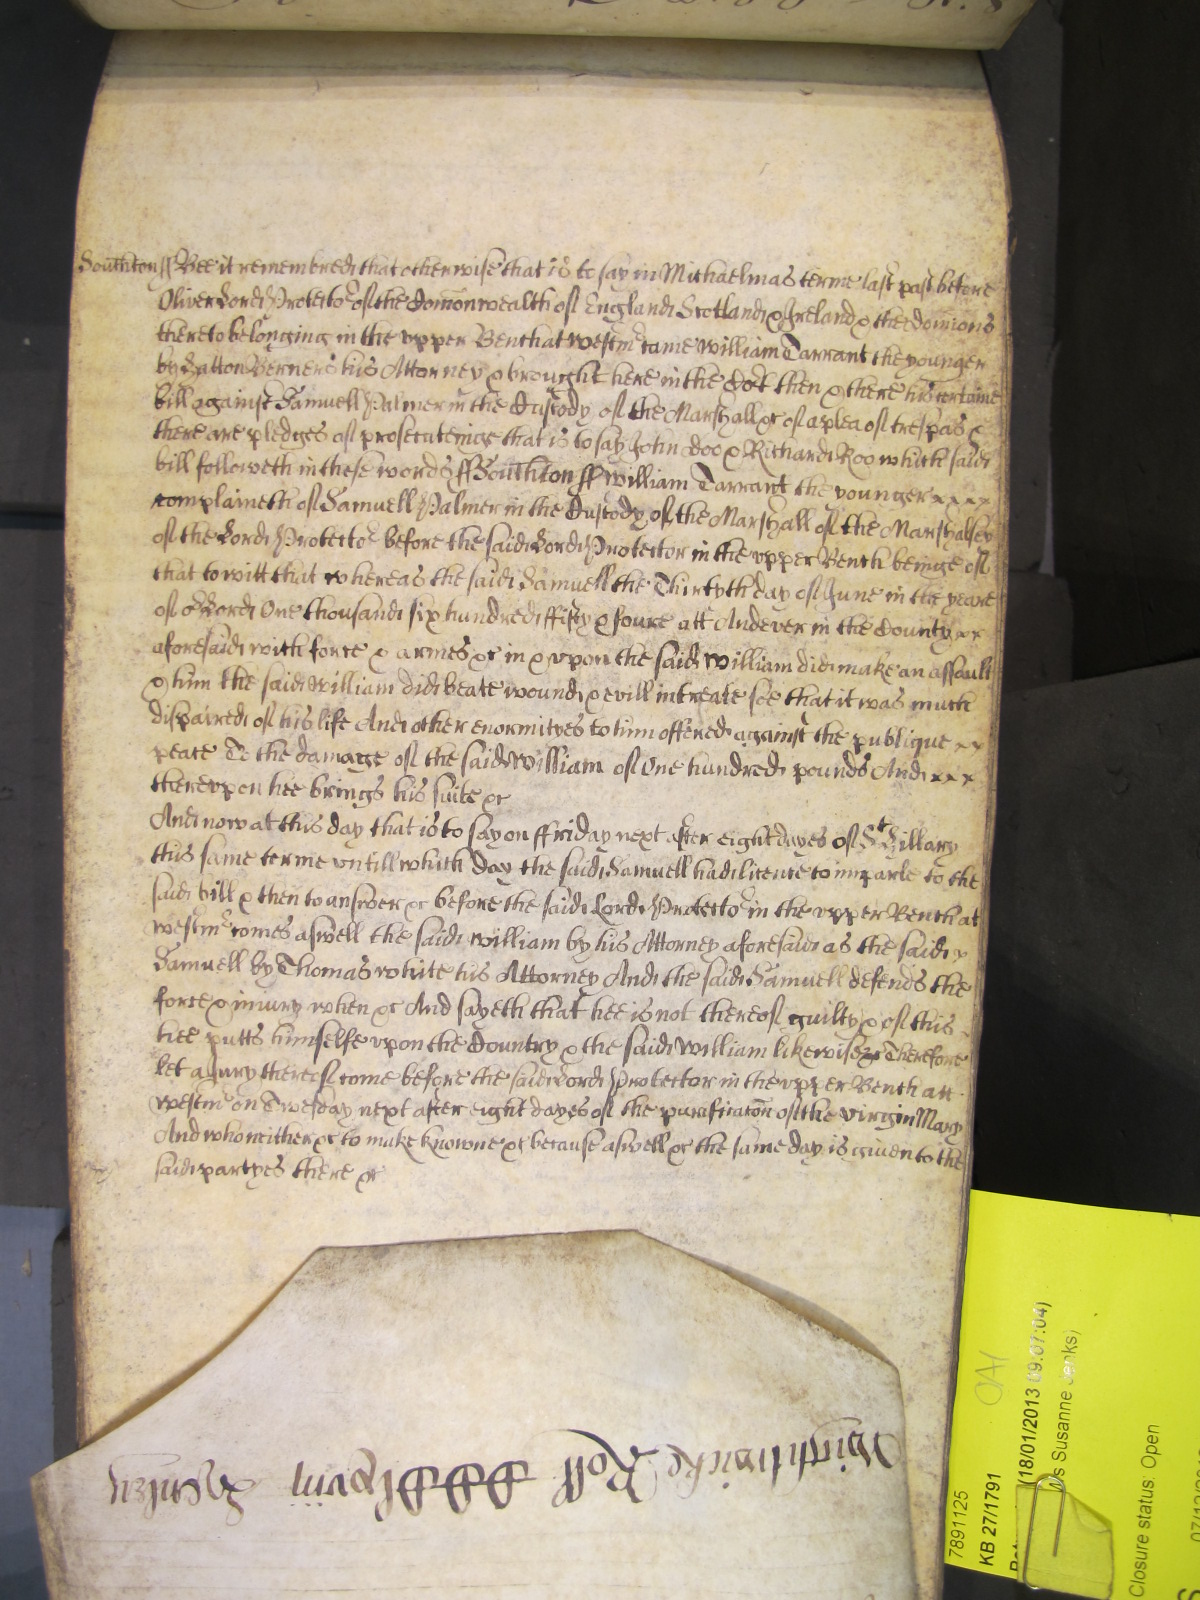 Southton ss Bee it remembred that otherwise that is to say in Michaelmas terme last past before
Oliver Lord Protector of the Comonwealth of England Scotland & Ireland & the dominions
thereto belonging in the upper Bench at Westmr came William Tarrant the younger
by Berners his Attorney & brought here in the Cort then & there his certaine
bill against Samuell Palmer in the Custody of the Marshall &c of a plea of trespas &
there are pledges of prosecuteinge that is to say John Doo & Richard Roo which said
bill followeth in these words ss Southton ss William Tarrant the younger xxxx
complaineth of Samuell Palmer in the Custody of the Marshall of the Marshalsey
of the Lord Protector before the said Lord Protector in the upper Bench beinge of
that to witt that whereas the said Samuell the Thirtyth day of June in the yeare
of or Lord One thousand six hundred fifty & foure att Andever in the County xx
aforesaid with force & armes &c in & upon the said William did make an assault
& him the said William did beate wound & evill intreate soe that it was much
dispaired of his life And other enormityes to him offered against the publique xx
peace To the damage of the said William of One hundred pounds And xxx
thereupon hee brings his suite &c
And now at this day that is to say on ffriday next after eight dayes of St Hillary
this same terme untill which day the said Samuell had licence to imparle to the
said bill & then to answer &c before the said Lord Protector in the upper Bench at
Westmr comes aswell the said William by his Attorney aforesaid as the said x
Samuell by Thomas White his Attorney And the said Samuell defends the
force & iniury when &c And sayeth that hee is not thereof guilty & of this
hee putts himselfe upon the Country & the said William likewise &c Therefore
let a Jury thereof come before the said Lord Protector in the upper Bench att
Westmr on Twesday next after eight dayes of the purificacon of the virgin Mary
And who neither &c to make knowne &c because aswell &c the same day is given to the
said partyes there &c
Roll
7891125
KB 27/1791
(18/01/2013 09:07:04)
Susanne Jenks)
Closure status: Open